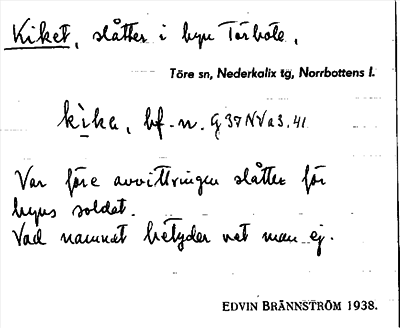 Kiket, slåtter i byn Törböle.
Töre sn, Nederkalix tg, Norrbottens l.
kika, bf. n. G 37 N V a 3. 41
Var före avvittringen slåtter för
byns soldat.
Vad namnet betyder vet man ej.
EDVIN BRÄNNSTRÖM 1938.